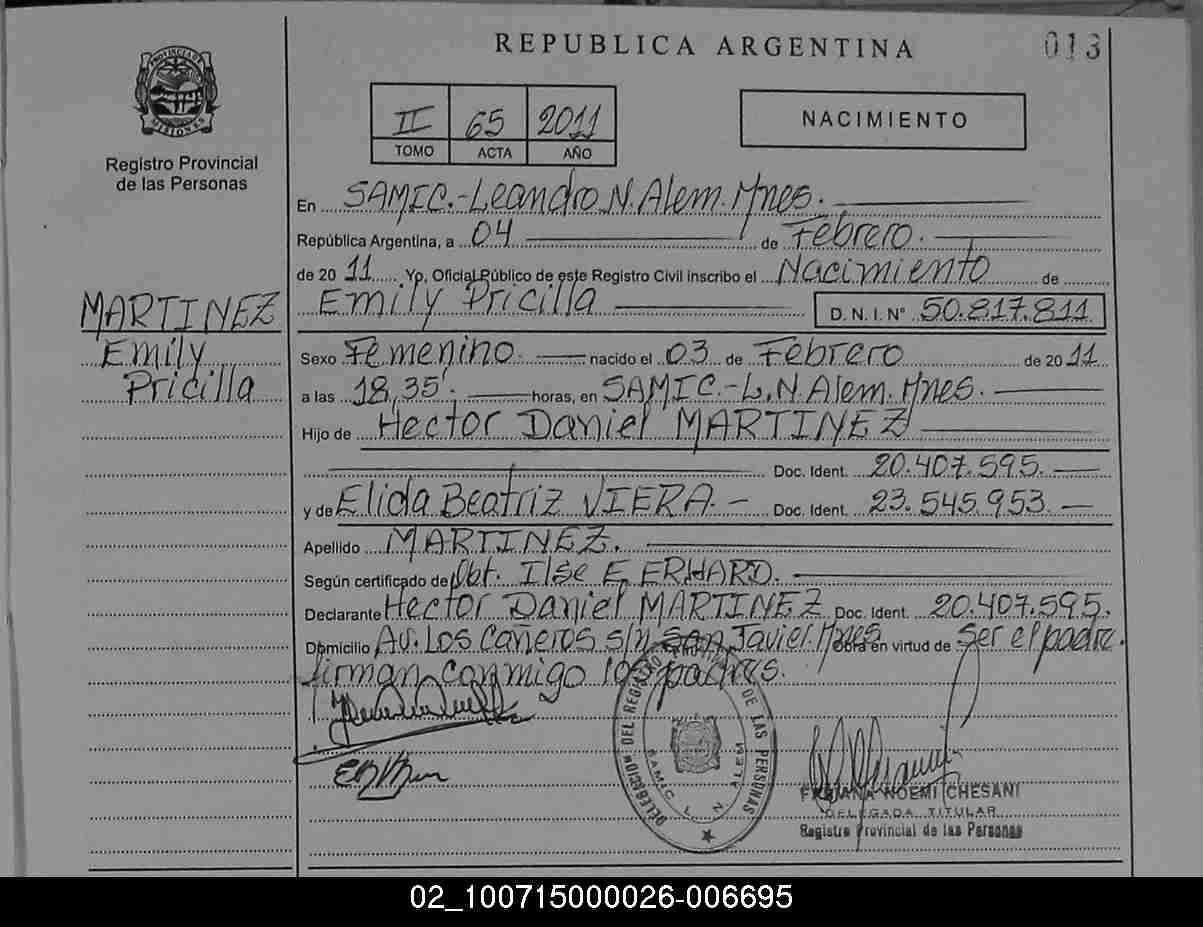 REPUBLICA ARGENTINA
013
PROVINCIA DE MISIONES
Registro Provincial
de las Personas
II 65 2011
TOMO ACTA AÑO
NACIMIENTO
En SAMIC.-Leandro N. Alem. Mnes.
República Argentina, a 04 de Febrero.
de 2011 Yo, Oficial Público de este Registro Civil inscribo el Nacimiento de
Emily Pricilla D. N. I. N° 50.817.811
MARTINEZ
Emily
Pricilla
Sexo Femenino. nacido el 03 de Febrero de 2011
a las 18,35'. horas, en SAMIC.-L.N.Alem.Mnes.
Hijo de Hector Daniel MARTINEZ
Doc. Ident. 20.407.595.
y de Elida Beatriz VIERA.- Doc. Ident. 23.545.953.
Apellido MARTINEZ.
Según certificado de Obt. Ilse E. ERHARD.
Declarante Hector Daniel MARTINEZ Doc. Ident. 20.407.595.
Domicilio Av. Los Cañeros s/n San Javier.Mnes Obra en virtud de Ser el padre.
firman conmigo los padres.
DELEGACION DEL REGISTRO DE LAS PERSONAS
SAMIC L. N. ALEM
FABIANA NOEMI CHESANI
DELEGADA TITULAR
Registro Provincial de las Personas
02_100715000026-006695